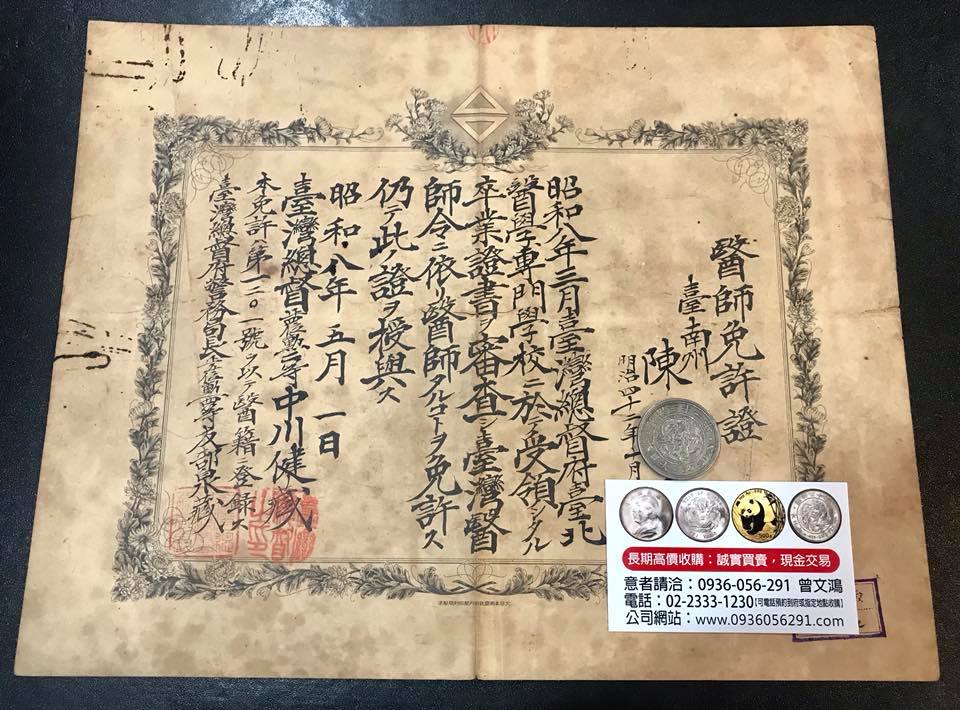 醫師免許證
臺南州
陳
明治四十二年十月
昭和八年三月臺灣總督府臺北
醫學專門學校ニ於テ受領シタル
卒業證書ヲ審査シ臺灣醫
師令ニ依リ醫師タルコトヲ免許ス
仍テ此ノ證ヲ授與ス
昭和八年五月一日
臺灣總督 勲二等 中川健藏
本免許ハ第一二〇一號ヲ以テ醫籍ニ登録ス
臺灣總督府警務局長
長期高價收購：誠實買賣，現金交易
意者請洽：0936-056-291 曾文鴻
電話：02-2333-1230【可電話預約到府或指定地點收購】
公司網站：www.0936056291.com